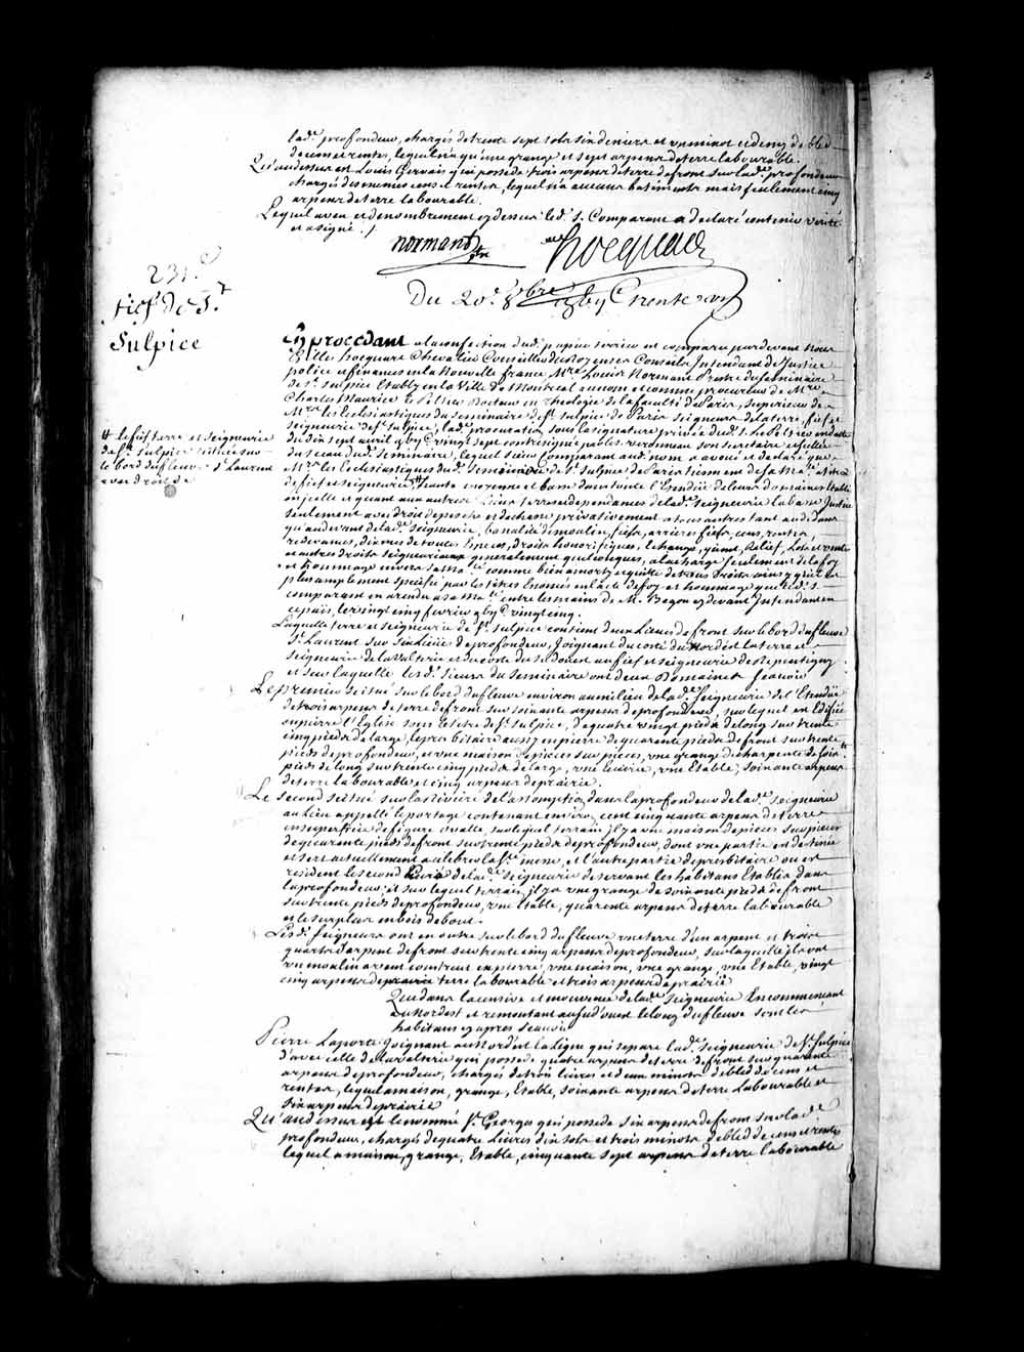 lad.e profondeur, chargés de trente sept sols six deniers et un minot et demy de bled
de cens et rentes, lequel n'a qu'une grange et sept arpens de terre labourable.
Qu'audessus est Louis Gervais qui possede trois arpens de terre de front sur lad.e profondeur
chargés des memes cens et rentes, lequel n'a aucuns batiments mais seulement cinq
arpens de terre labourable.
Lequel aveu et denombrement cy dessus led. S. Comparant a declaré contenir verité
et a signé ./.
normant ptre hocquart
Du 20.e 8bre 17by C trente un
231.e
fief de S.t
Sulpice
En procedant a la confection dud. papier terrier est comparu pardevant nous
Gilles hocquart Chevalier Conseiller du Roy en ses Conseils Intendant de Justice
police et finances en la Nouvelle france M.re Louis Normant Prêtre du seminaire
de S.t Sulpice Etably en la Ville de Montreal au nom et comme procureur de M.re
Charles Maurice le Peltier Docteur en Theologie de la faculté de Paris, superieur de
M.rs les Ecclesiastiques du seminaire de S.t Sulpice de Paris seigneurs de la terre, fief et
seigneurie de S.t Sulpice, lad.e procuration sous la signature privée dud. S. Le Peltier en datte
du dix sept avril 17by C vingt sept contresigné par les verdoneau son secretaire et scellée
du sceau dud. seminaire, lequel sieur Comparant aud. nom a avoué et declaré que
M.rs les Ecclesiastiques dud. Seminaire de S.t Sulpice de Paris tiennent de sa Ma.té a titre
de fief et seigneurie # haute moyenne et basse dans toute l'Etendüe de leurs domaines Etablis
en icelle et quant aux autres lieux terres et dependances de lad.e seigneurie la basse Justice
seulement avec droit de pesche et de chasse privativement a tous autres tant au dedans
qu'au devant de lad.e seigneurie, banalité de moulin, fiefs, arrieres fiefs, cens, rentes,
redevances, dixmes de toutes Especes, droits honorifiques, Echange, quint, Relief, Lots et ventes
et autres droits seigneuriaux generalement quelconques, a la charge seulement de la foy
et hommage envers sa Ma.té comme bien amorty et quitte de tous droits ainsy qu'il est
plus amplement specifié par les titres Enoncés en l'acte de foy et hommage que led. S.
comparant en a rendu a sa Ma.té entre les mains de M. Begon cy devant Intendant en
ce pais, le vingt cinq fevrier 17by C vingt cinq.
# le fief terre et seigneurie
de S.t Sulpice située sur
le bord du fleuve S.t Laurent
avec droit de
Laquelle terre et seigneurie de S.t Sulpice contient deux Lieues de front sur le bord du fleuve
S.t Laurent sur six lieües de profondeur, Joignant du costé du Nord est la terre et
seigneurie de la Valterie et du coste du S. Douest au fief et seigneurie de Repentigny
et sur laquelle les d. sieurs du seminaire ont deux Domaines Scavoir
Le premier scitué sur le bord du fleuve environ au milieu de lad.e Seigneurie de l'Etendüe
de trois arpens de terre de front sur soixante arpens de profondeur, sur lequel est Edifiée
en pierre l'Eglise sous le titre de S.t Sulpice, de quatre vingt pieds de long sur trente
cinq pieds de large, le presbitaire aussy en pierre de quarante pieds de front sur trente
pieds de profondeur, et une maison de pieces sur pieces, une grange de charpente de soix.te
pieds de long sur trente cinq pieds de large, une Ecurie, une Etable, soixante arpens
de terre labourable et cinq arpens de prairie.
Le second scitué sur la riviere de l'assomption dans la profondeur de lad.e seigneurie
au Lieu appellé le portage contenant environ cent cinquante arpens de terre
en superficie de figure ovalle, sur lequel terrain il y a une maison de pieces sur pieces
de quarante pieds de front sur trente pieds de profondeur, dont une partie est destinée
et sert actuellement a celebrer la s.te messe, et l'autre partie de presbitaire ou est
resident le second Curé de la d.e seigneurie deservant les habitans Etablis dans
la profondeur; et sur lequel terrain il y a une grange de soixante pieds de front
sur trente pieds de profondeur, une Etable, quarante arpens de terre labourable
et le surplus en bois debout.
Lesd. Seigneurs ont en outre sur le bord du fleuve une terre d'un arpent et trois
quarts d'arpent de front sur trente cinq arpens de profondeur, sur laquelle ils ont
un moulin a vent construit en pierre, une maison, une grange, une Etable, vingt
cinq arpens de prairie terre labourable et trois arpens de prairie
Que dans la censive et mouvance de lad.e Seigneurie En commencant
au Nord est et remontant au sud ouest le long du fleuve sont les
habitans cy apres Scavoir
Pierre Laporte Joignant au Nord est la Ligne qui separe lad.e Seigneurie de S.t Sulpice
d'avec celle de Lavalterie qui possede quatre arpens de terre de front sur quarante
arpens de profondeur, chargés de trois livres et deux minots de bled de cens et
rentes, lequel a maison, grange, Etable, soixante arpens de terre Labourable et
six arpens de prairie
Qu'au dessus est le nommé S.t Georges qui possede six arpens de front sur lad.e
profondeur, chargés de quatre Livres dix sols et trois minots de bled de cens et rentes
lequel a maison, grange, Etable, cinquante sept arpens de terre labourable